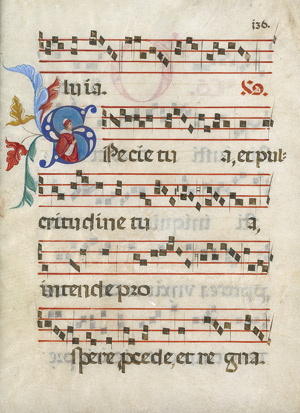 136.
luia. V.
Specie tu a, et pul
critudine tu a,
intende pro
spere, p̱cede, et re gna.